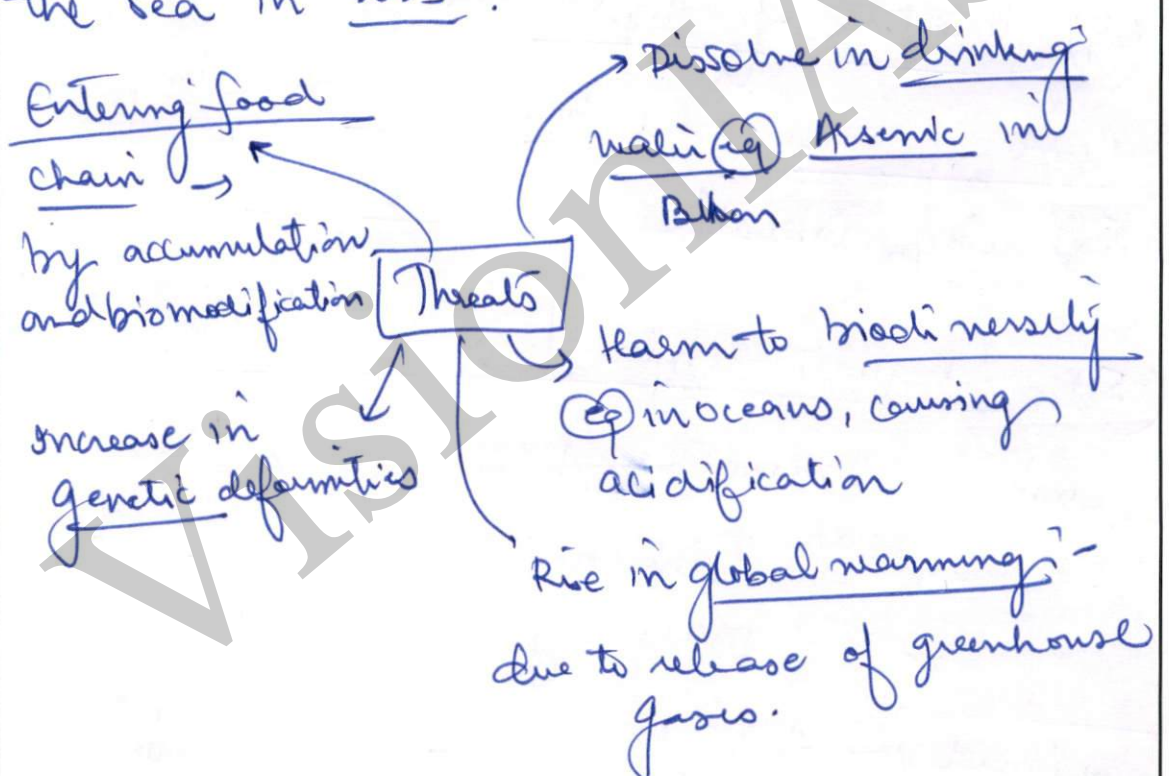 the sea in
Entering food
chain →
by accumulation
and biomodification
Threats
Dissolve in drinking
water eg Arsenic in
Bihar
Harm to biodiversity
eg in oceans, causing
acidification
increase in
genetic deformities
Rise in global warming :-
due to release of greenhouse
gases.
VisionIAS